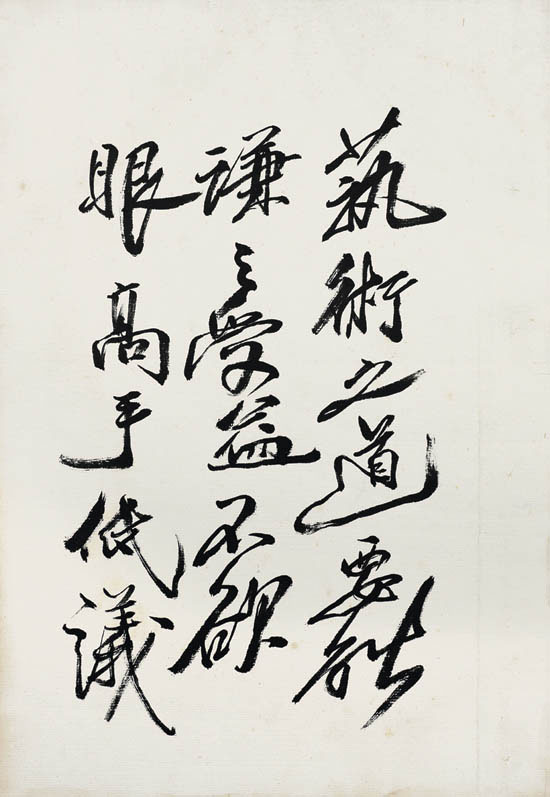 藝術之道要能
謙受益不欲
眼高手低議